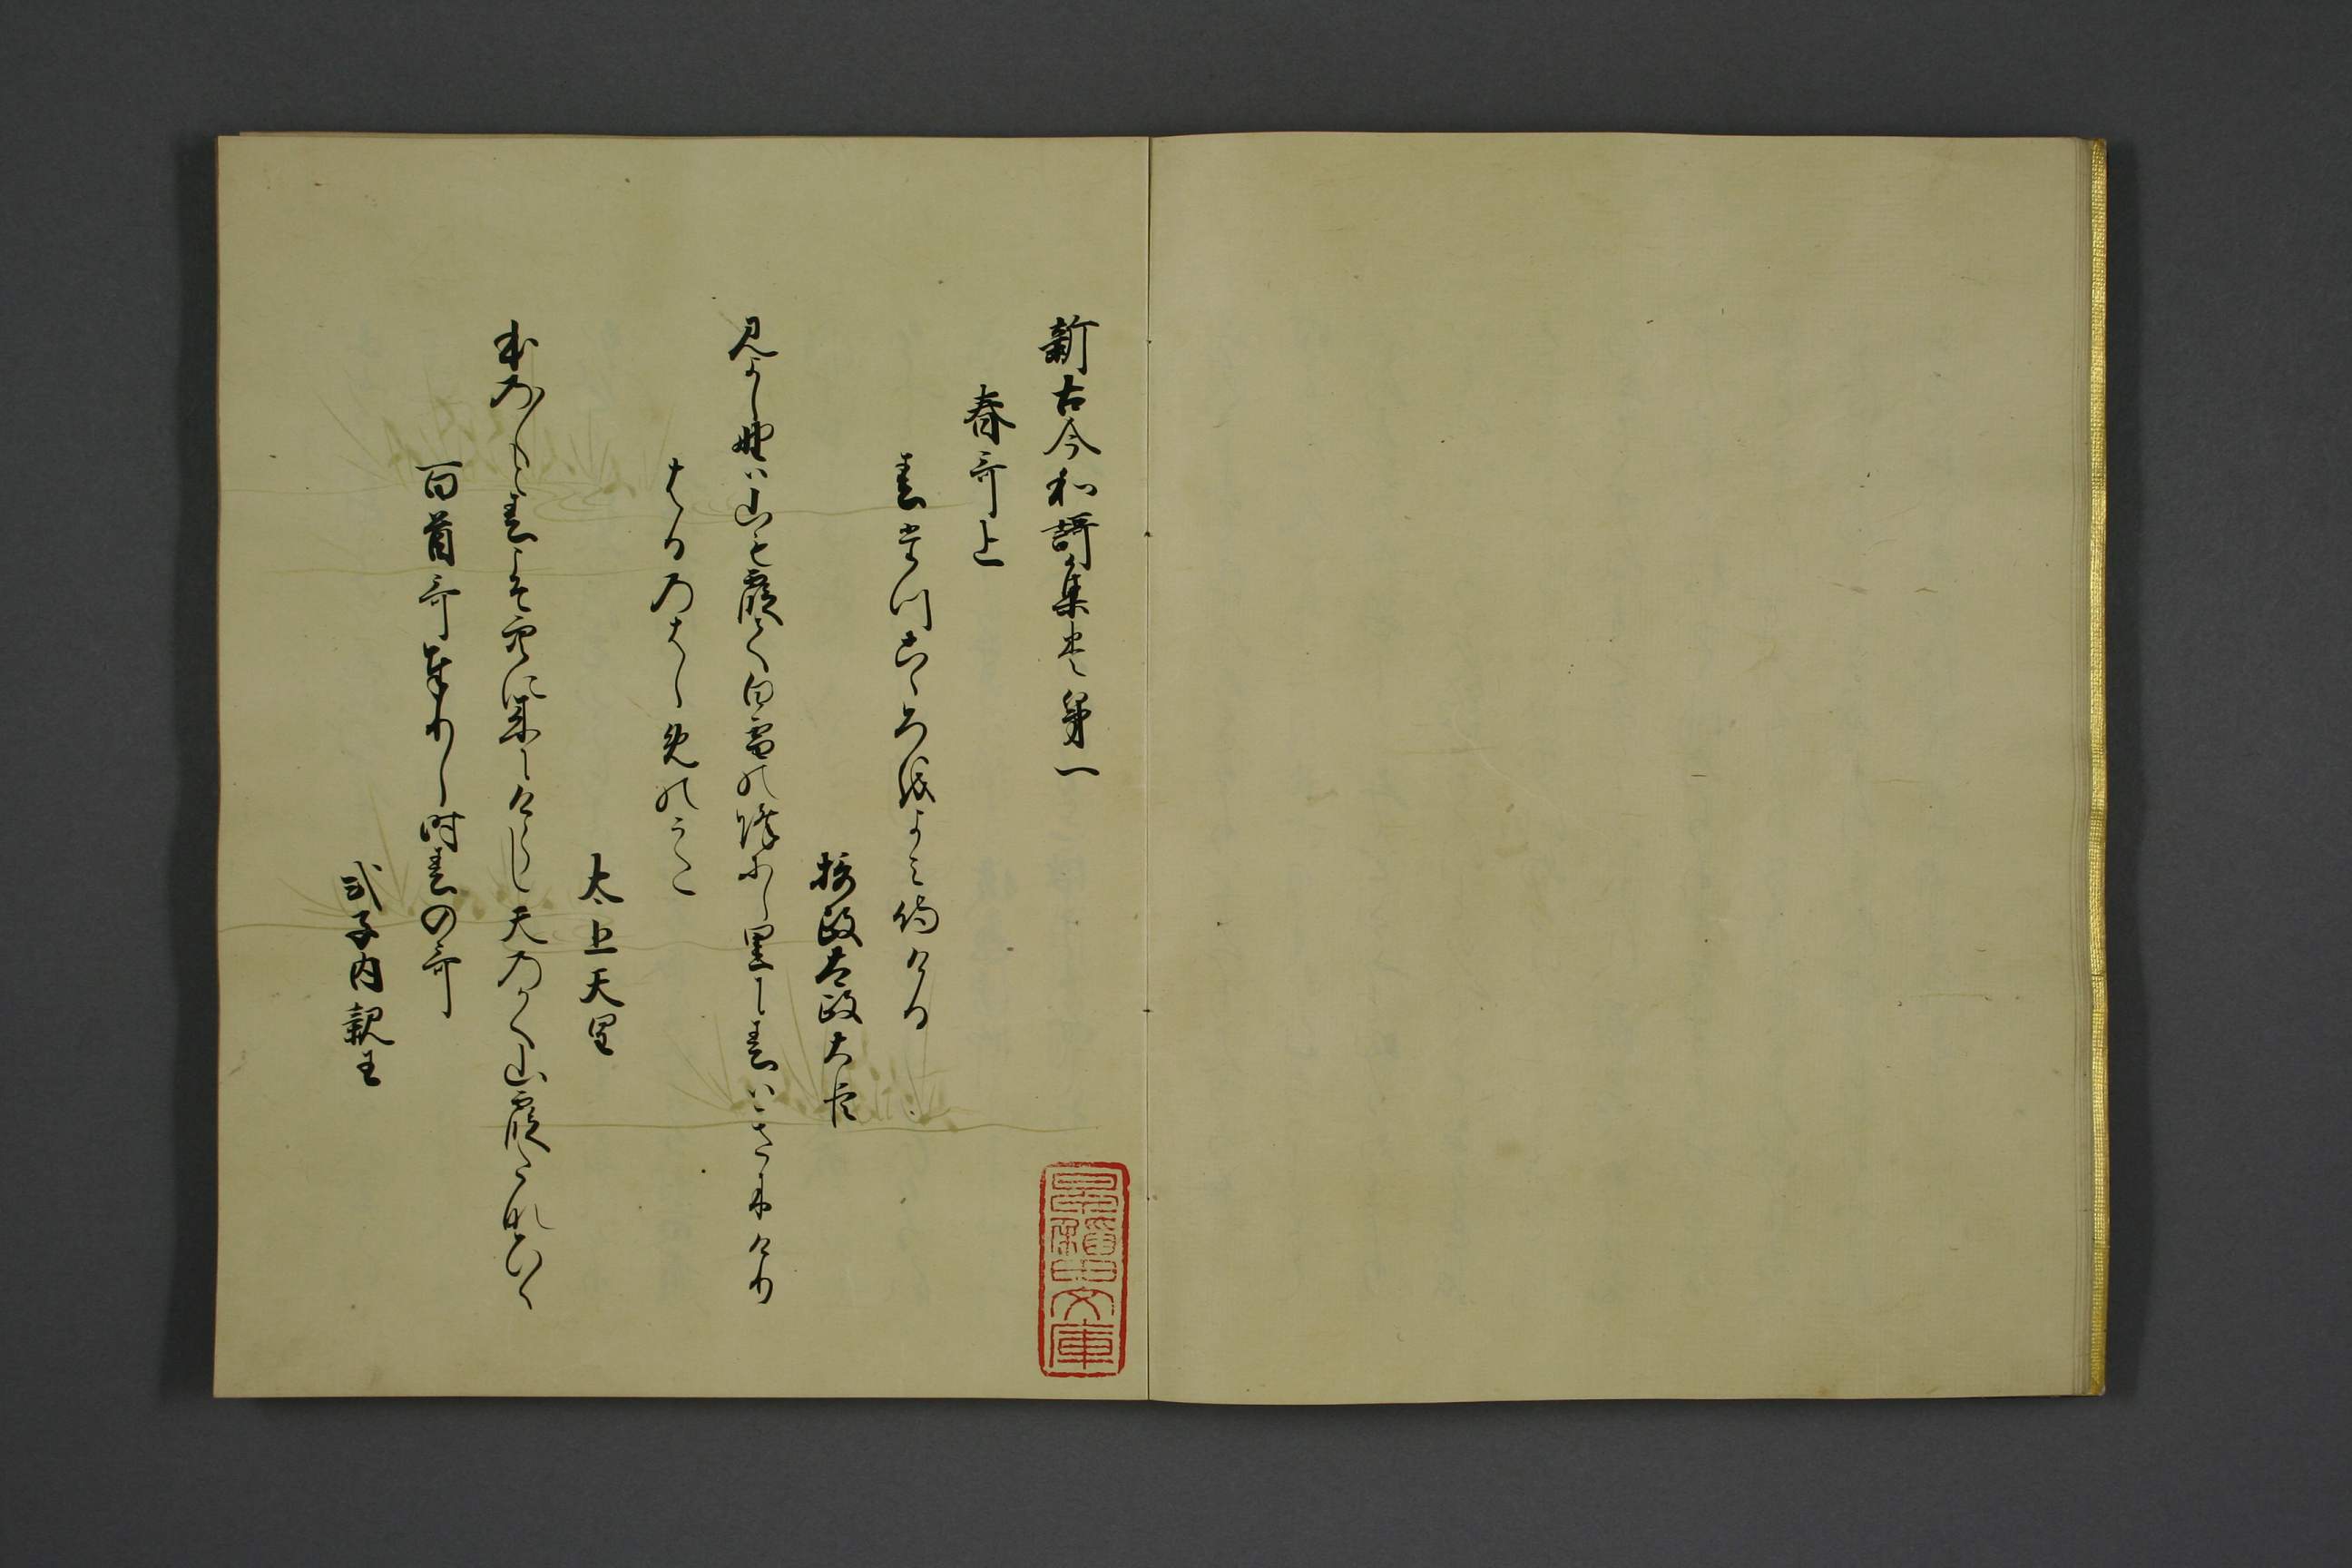 新古今和謌集巻第一
春哥上
春たつ心をよみ侍ける
摂政太政大臣
見よし野は山も霞て白雪のふりにし里に春はきにけり
はるのはしめのうた
太上天皇
ほの〳〵と春こそ空に来にけらし天のかく山霞たなひく
百首哥奉りし時春の哥
式子内親王